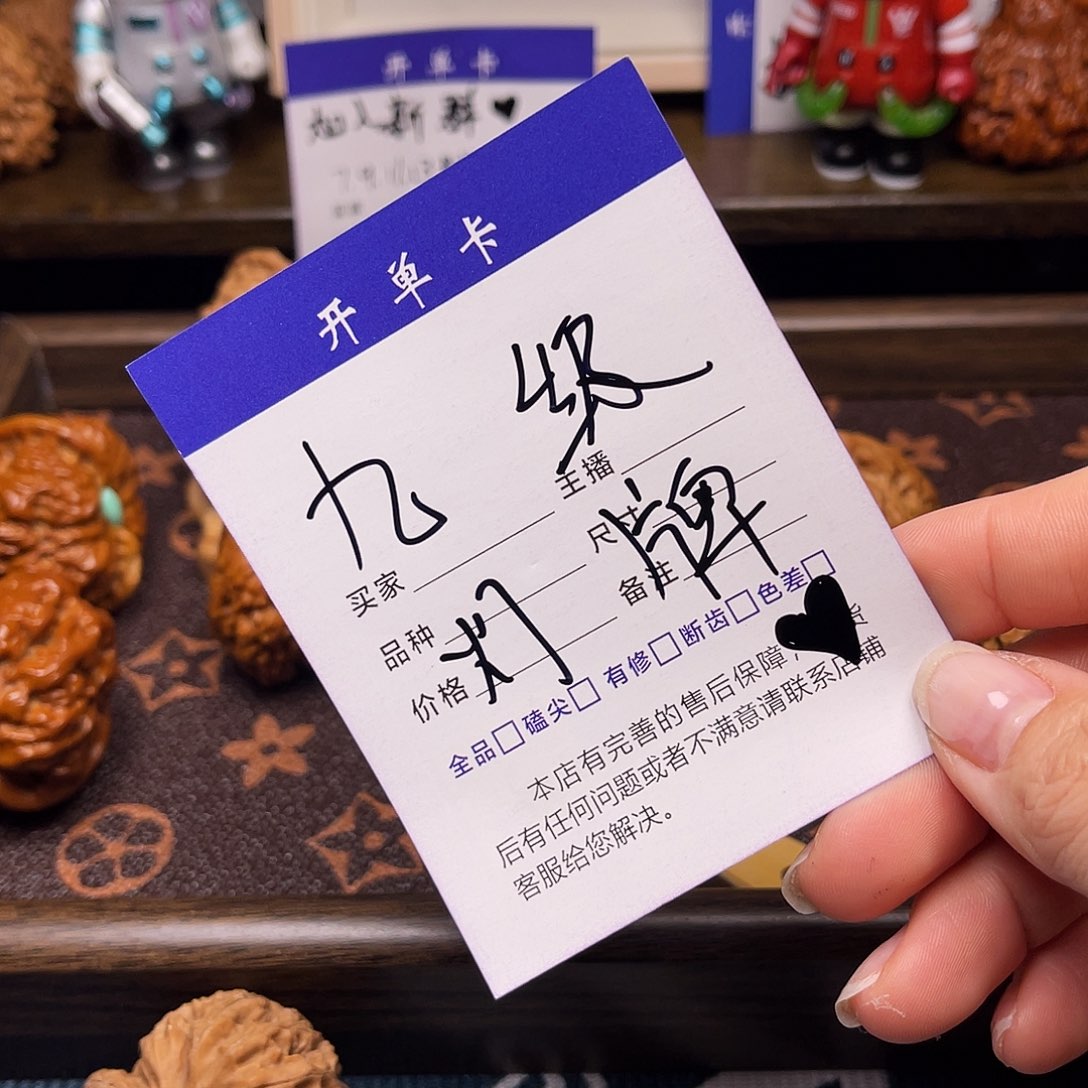 开单卡
加入新群
开单卡
九级
买家
主播
品种
尺寸
价格
备注
灯牌
全品□磕尖□有修□断齿□色差□
本店有完善的售后保障，货
后有任何问题或者不满意请联系店铺
客服给您解决。